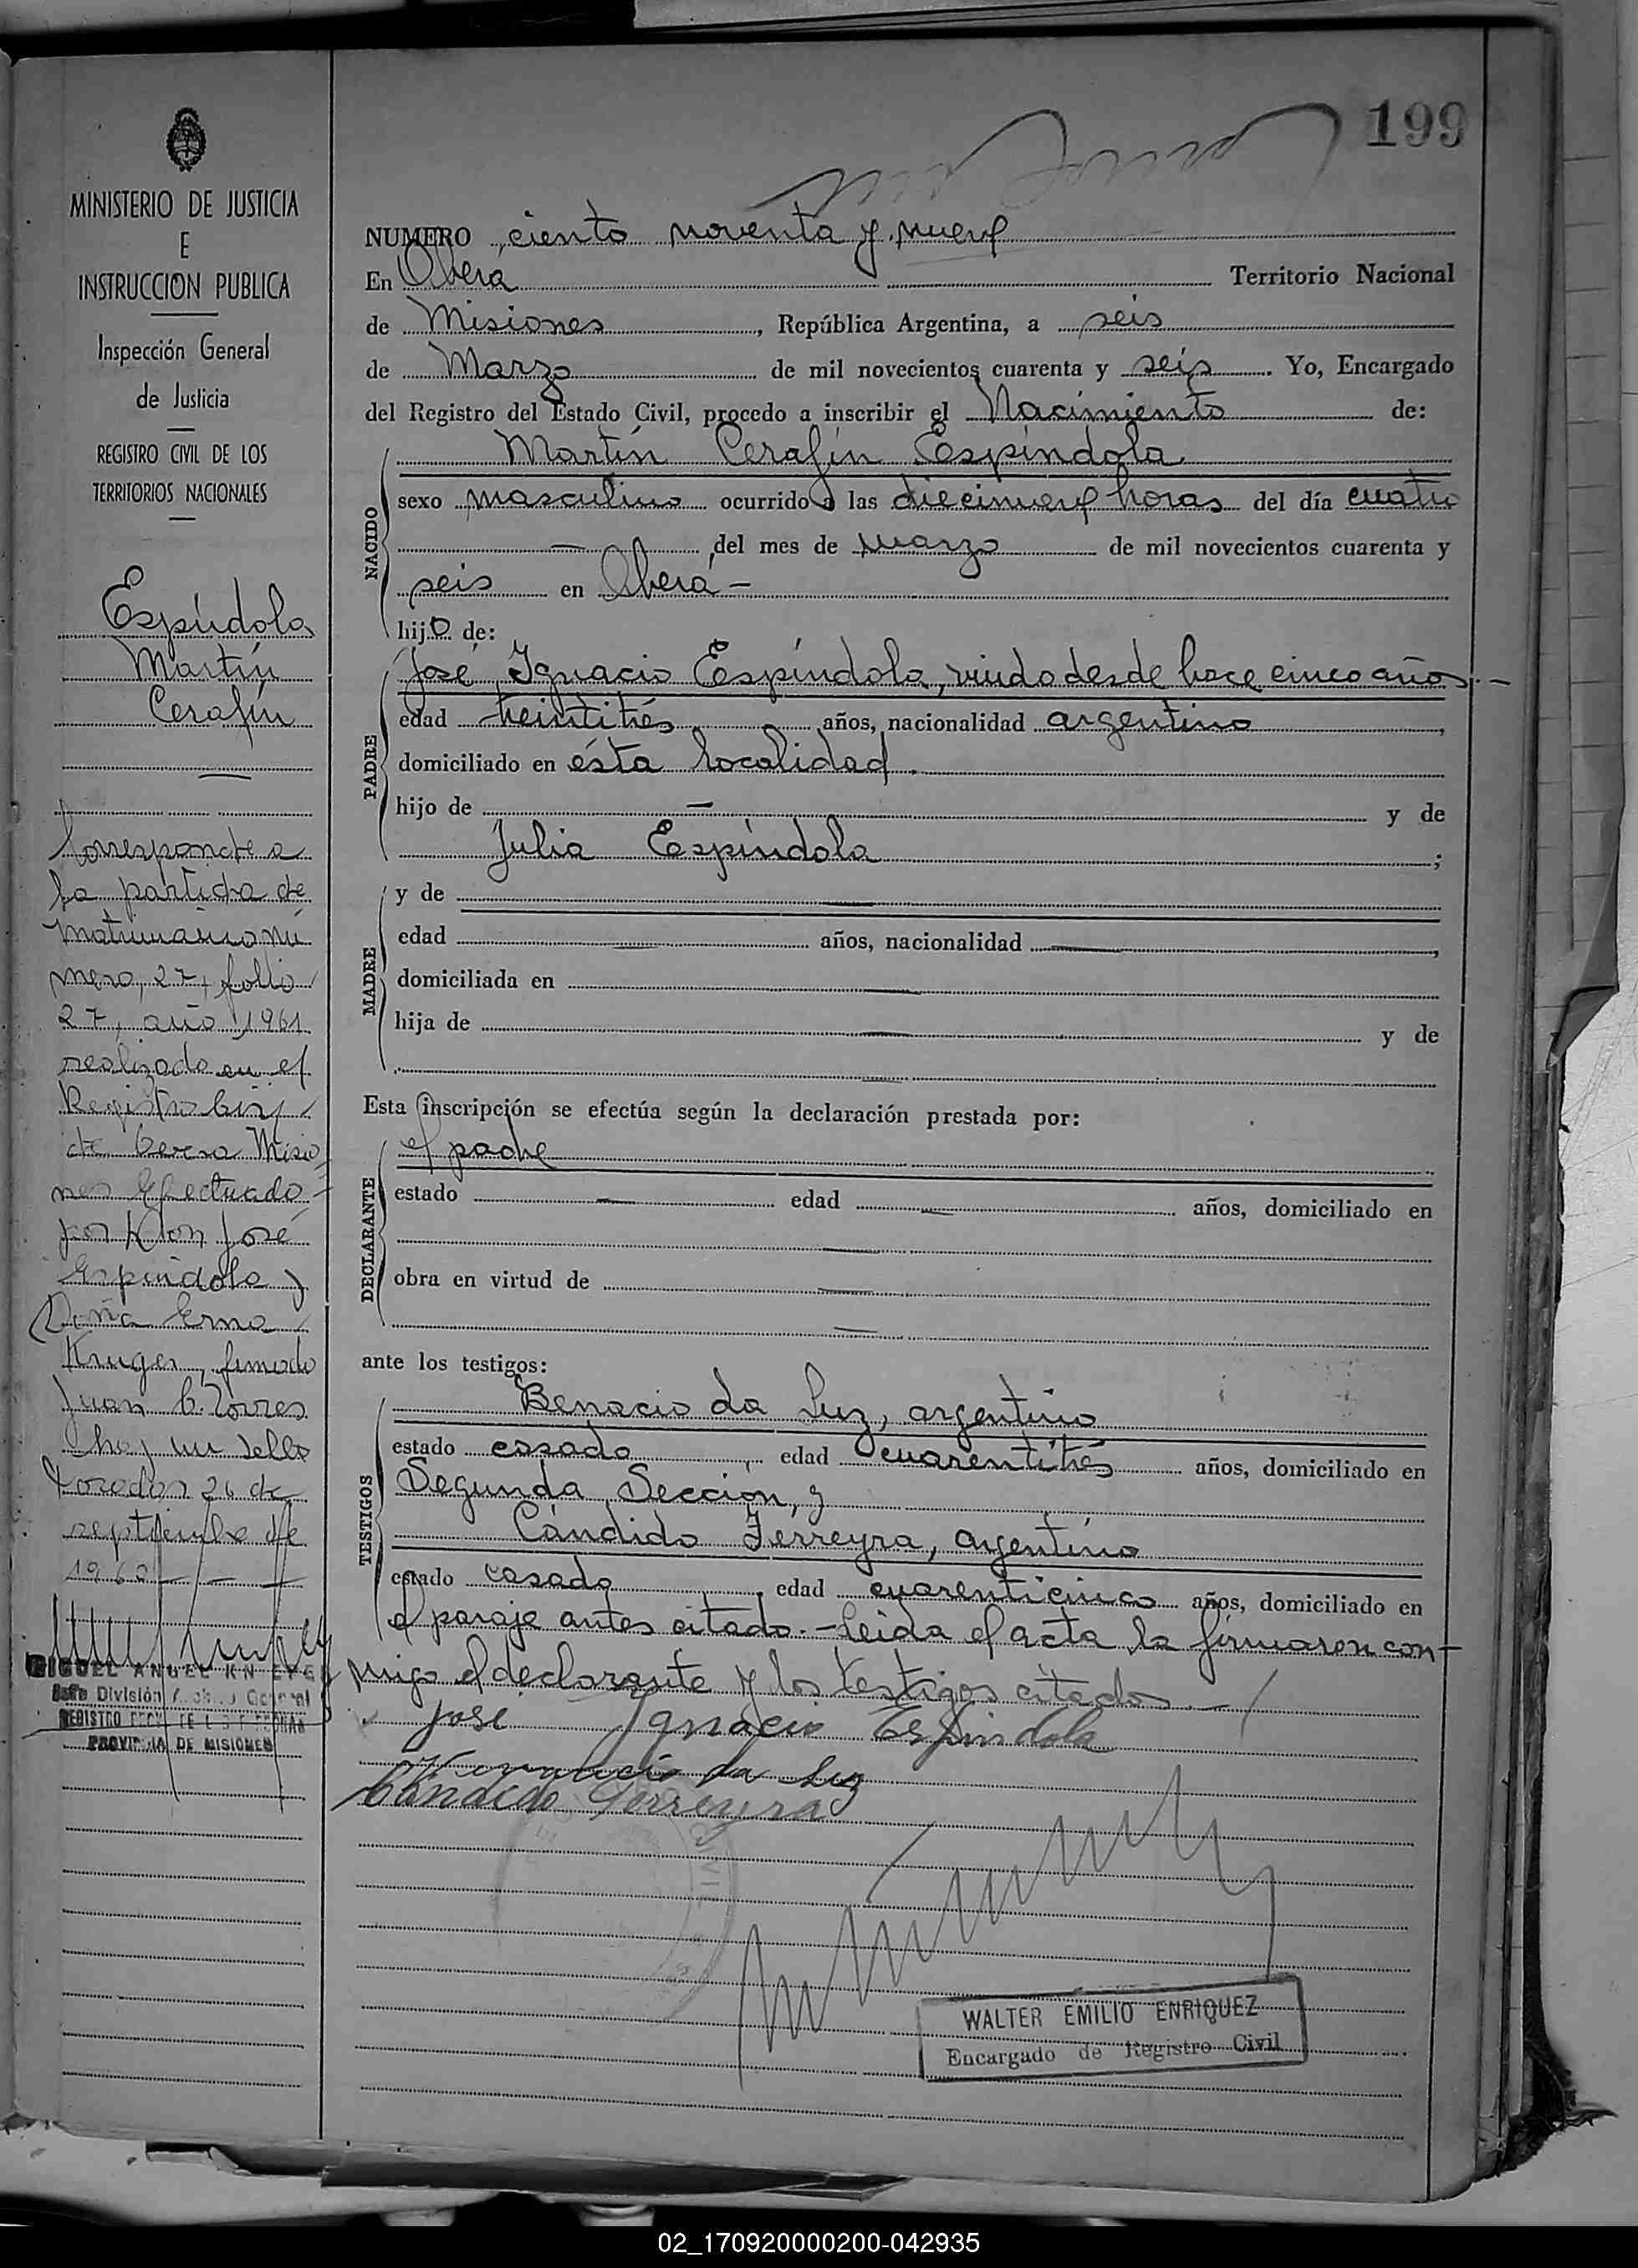 199
MINISTERIO DE JUSTICIA
E
INSTRUCCIÓN PUBLICA
Inspección General
de Justicia
REGISTRO CIVIL DE LOS
TERRITORIOS NACIONALES
Espíndola
Martín
Cerafín
Corresponde a
la partida de
matrimonio nú
mero, 27, folio
27, año 1961
realizado en el
Registro Civil
de Misio
nes Efectuado
por Don José
Espíndola y
Doña Erma
Kruger, firmado
Juan C. Torres
hay un sello
Posadas 26 de
septiembre de
196
MIGUEL ANGEL
Jefe División General
REGISTRO
PROVINCIA DE MISIONES
NUMERO ciento noventa y nueve
En Oberá Territorio Nacional
de Misiones, República Argentina, a seis
de Marzo de mil novecientos cuarenta y seis. Yo, Encargado
del Registro del Estado Civil, procedo a inscribir el Nacimiento de:
NACIDO
Martín Cerafín Espíndola
sexo masculino ocurrido a las diecinueve horas del día cuatro
— del mes de marzo de mil novecientos cuarenta y
seis en Oberá —
hijo de:
PADRE
José Ignacio Espíndola, viudo desde hace cinco años.—
edad treintitrés años, nacionalidad argentino,
domiciliado en ésta localidad.
hijo de — y de
Julia Espíndola;
MADRE
y de —
edad — años, nacionalidad —,
domiciliada en —
hija de — y de
—
Esta inscripción se efectúa según la declaración prestada por:
DECLARANTE
el padre
estado — edad — años, domiciliado en
—
obra en virtud de —
—
ante los testigos:
TESTIGOS
Benacio da Luz, argentino
estado casado, edad cuarentitrés años, domiciliado en
Segunda Sección, y
Cándido Ferreyra, argentino
estado casado, edad cuarenticinco años, domiciliado en
el paraje antes citado.—Leida el acta la firmaron con—
migo el declarante y los testigos citados.—
José Ignacio Espindola
da Luz
Candido Ferreyra
WALTER EMILIO ENRIQUEZ
Encargado de Registro Civil
02_170920000200-042935